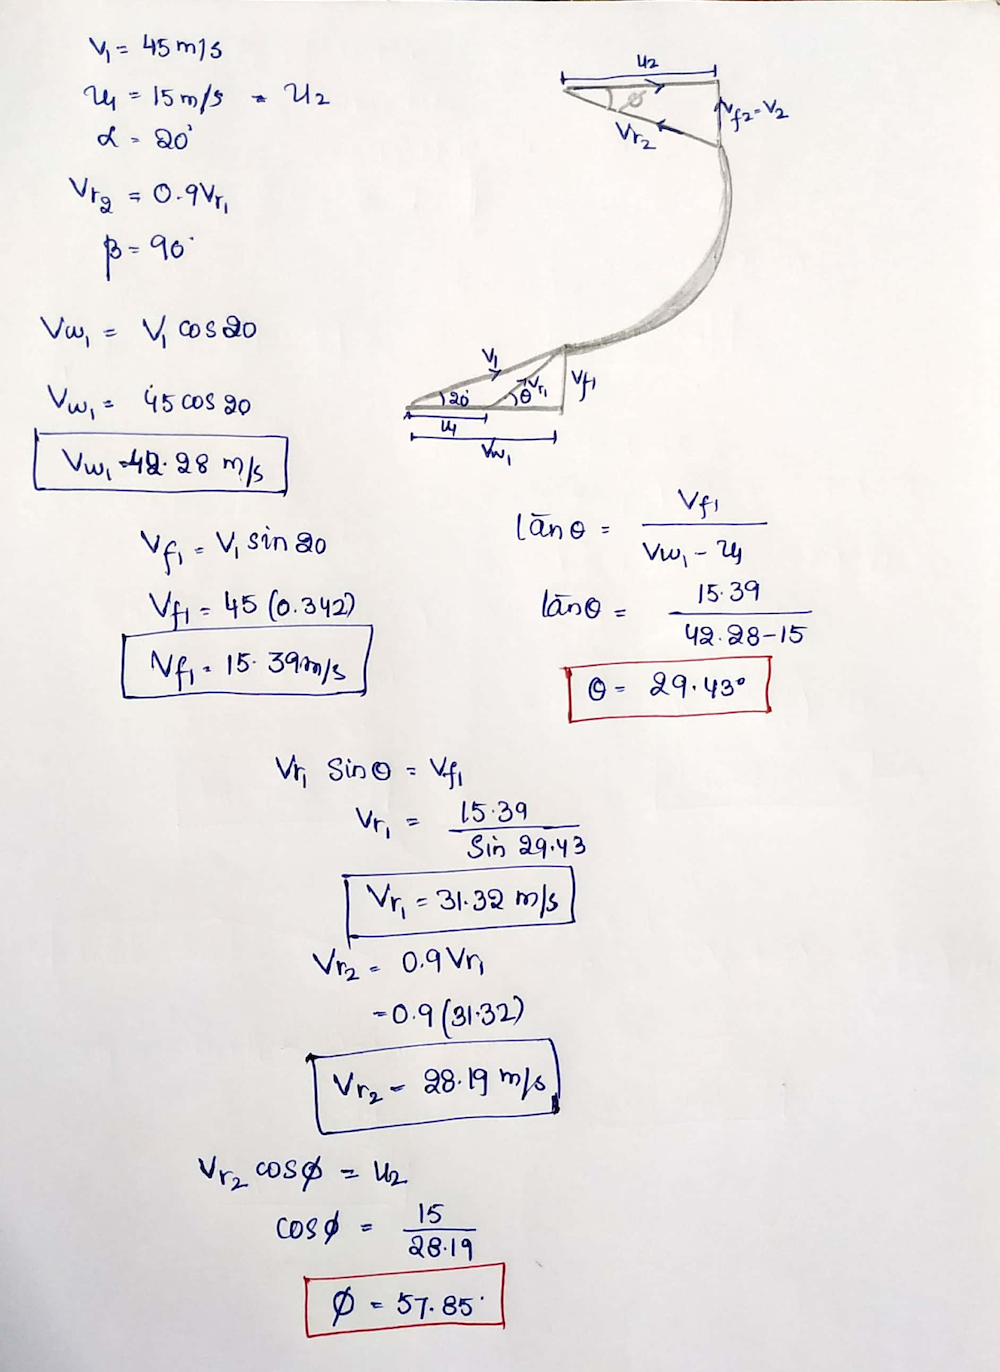 V₁ = 45 m/s
u₁ = 15 m/s = u₂
α = 20°
Vr₂ = 0.9Vr₁
β = 90°
u₂
ϕ
Vf₂ = V₂
Vr₂
Vw₁ = V₁ cos 20
Vw₁ = 45 cos 20
Vw₁ = 42.28 m/s
V₁
Vr₁
Vf₁
20°
θ
u₁
Vw₁
Vf₁ = V₁ sin 20
Vf₁ = 45 (0.342)
Vf₁ = 15.39 m/s
tan θ = Vf₁ / Vw₁ - u₁
tan θ = 15.39 / 42.28-15
θ = 29.43°
Vr₁ Sin θ = Vf₁
Vr₁ = 15.39 / Sin 29.43
Vr₁ = 31.32 m/s
Vr₂ = 0.9 Vr₁
= 0.9 (31.32)
Vr₂ = 28.19 m/s
Vr₂ cos ϕ = u₂
cos ϕ = 15 / 28.19
ϕ = 57.85°